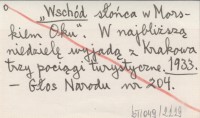 „Wschód słońca w Mors-
kiem Oku". W najbliższą
niedzielę wyjadą z Krakowa
trzy pociągi turystyczne. 1933.
– Głos Narodu nr 204.